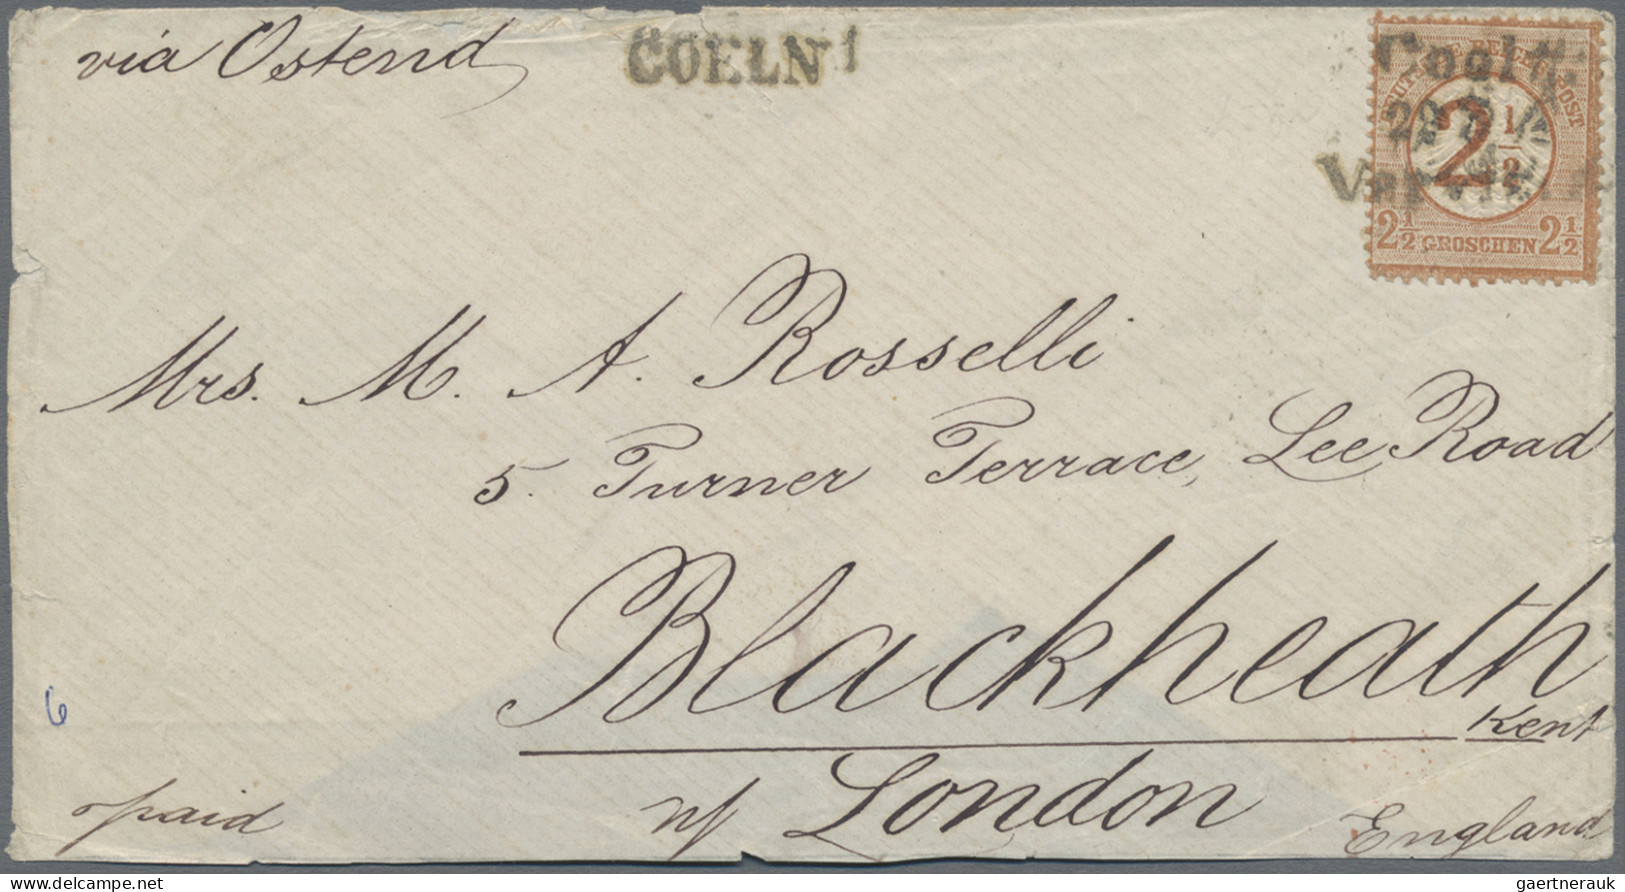 via Ostend
COELN
Coeln
DEUTSCHE REICHS-POST
2 1/2
2 1/2 GROSCHEN 2 1/2
Mrs. M. A. Rosselli
5. Turner Terrace, Lee Road
Blackheath
Kent
n/ London
England
paid
6
gaertnerauk